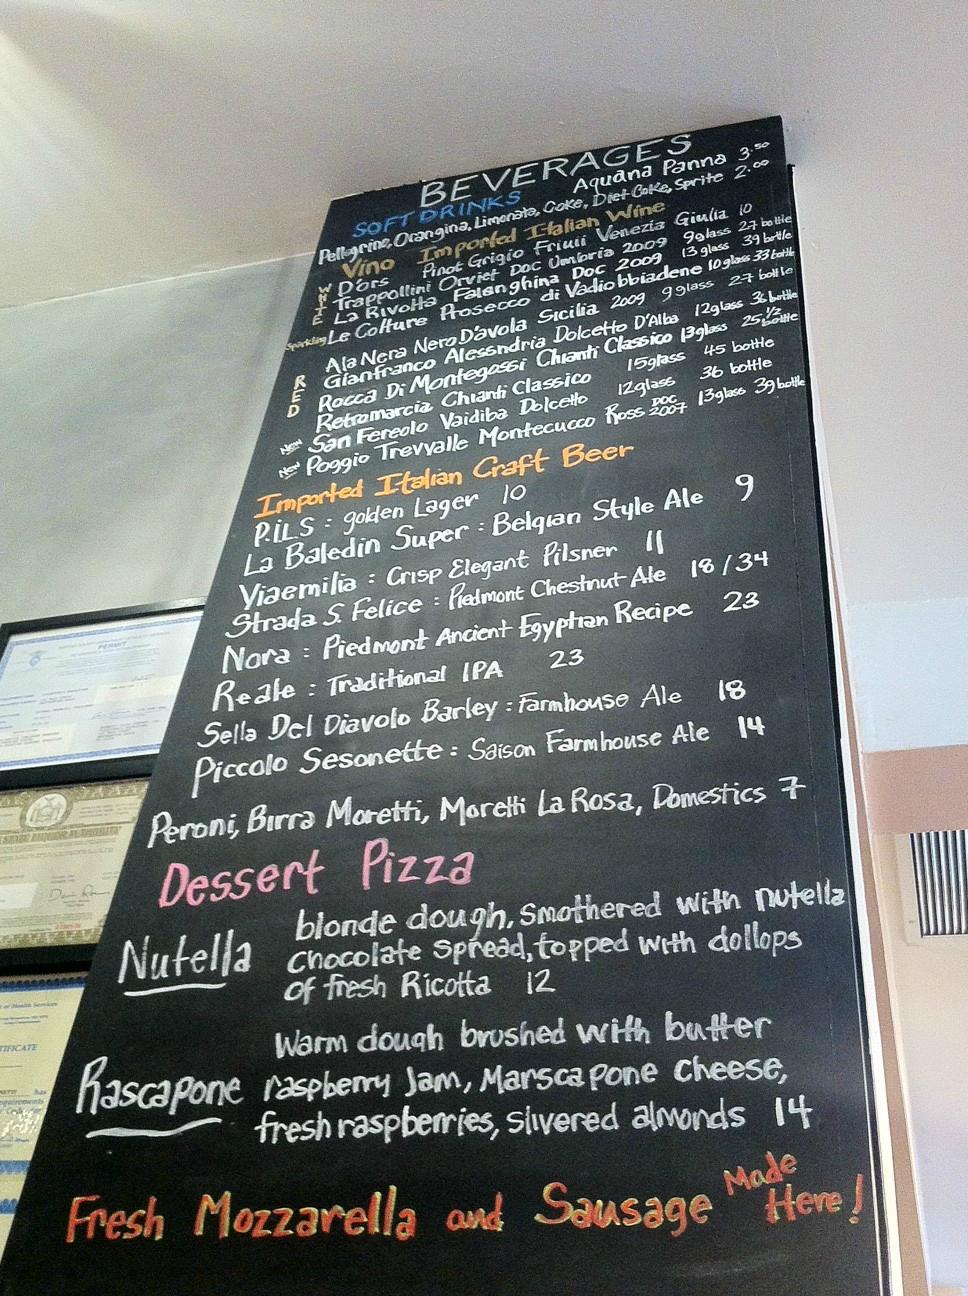 BEVERAGES
SOFT DRINKS Aquana Panna 3.50
Pellegrino, Orangina, Limonata, Coke, Diet Coke, Sprite 2.00
Vino Imported Italian Wine
WHITE
D'ors Pinot Grigio Friuii Venezia Giulia 10
Trappollini Orviet Doc Umbria 2009 9glass 27 bottle
La Rivolta Falanghina Doc 2009 13glass 39 bottle
Sparkling Le Colture Prosecco di Vadiobbiadene 10glass 33 bottle
RED
Ala Nera Nero D'avola Sicilia 2009 9glass 27 bottle
Gianfranco Alessndria Dolcetto D'Alba 12glass 36 bottle
Rocca Di Montegossi Chianti Classico 13glass 25 1/2 bottle
Retromarcia Chianti Classico 15glass 45 bottle
New San Fereolo Vaidiba Dolcetto 12glass 36 bottle
New Poggio Trevvalle Montecucco Ross DOC 2007 13glass 39 bottle
Imported Italian Craft Beer
P.I.L.S : golden Lager 10
La Baledin Super : Belgian Style Ale 9
Viaemilia : Crisp Elegant Pilsner 11
Strada S. Felice : Piedmont Chestnut Ale 18/34
Nora : Piedmont Ancient Egyptian Recipe 23
Reale : Traditional IPA 23
Sella Del Diavolo Barley : Farmhouse Ale 18
Piccolo Sesonette : Saison Farmhouse Ale 14
Peroni, Birra Moretti, Moretti La Rosa, Domestics 7
Dessert Pizza
Nutella
blonde dough, smothered with nutella
chocolate spread, topped with dollops
of fresh Ricotta 12
Rascapone
Warm dough brushed with butter
raspberry Jam, Marscapone Cheese,
fresh raspberries, slivered almonds 14
Fresh Mozzarella and Sausage Made Here!
PERMIT